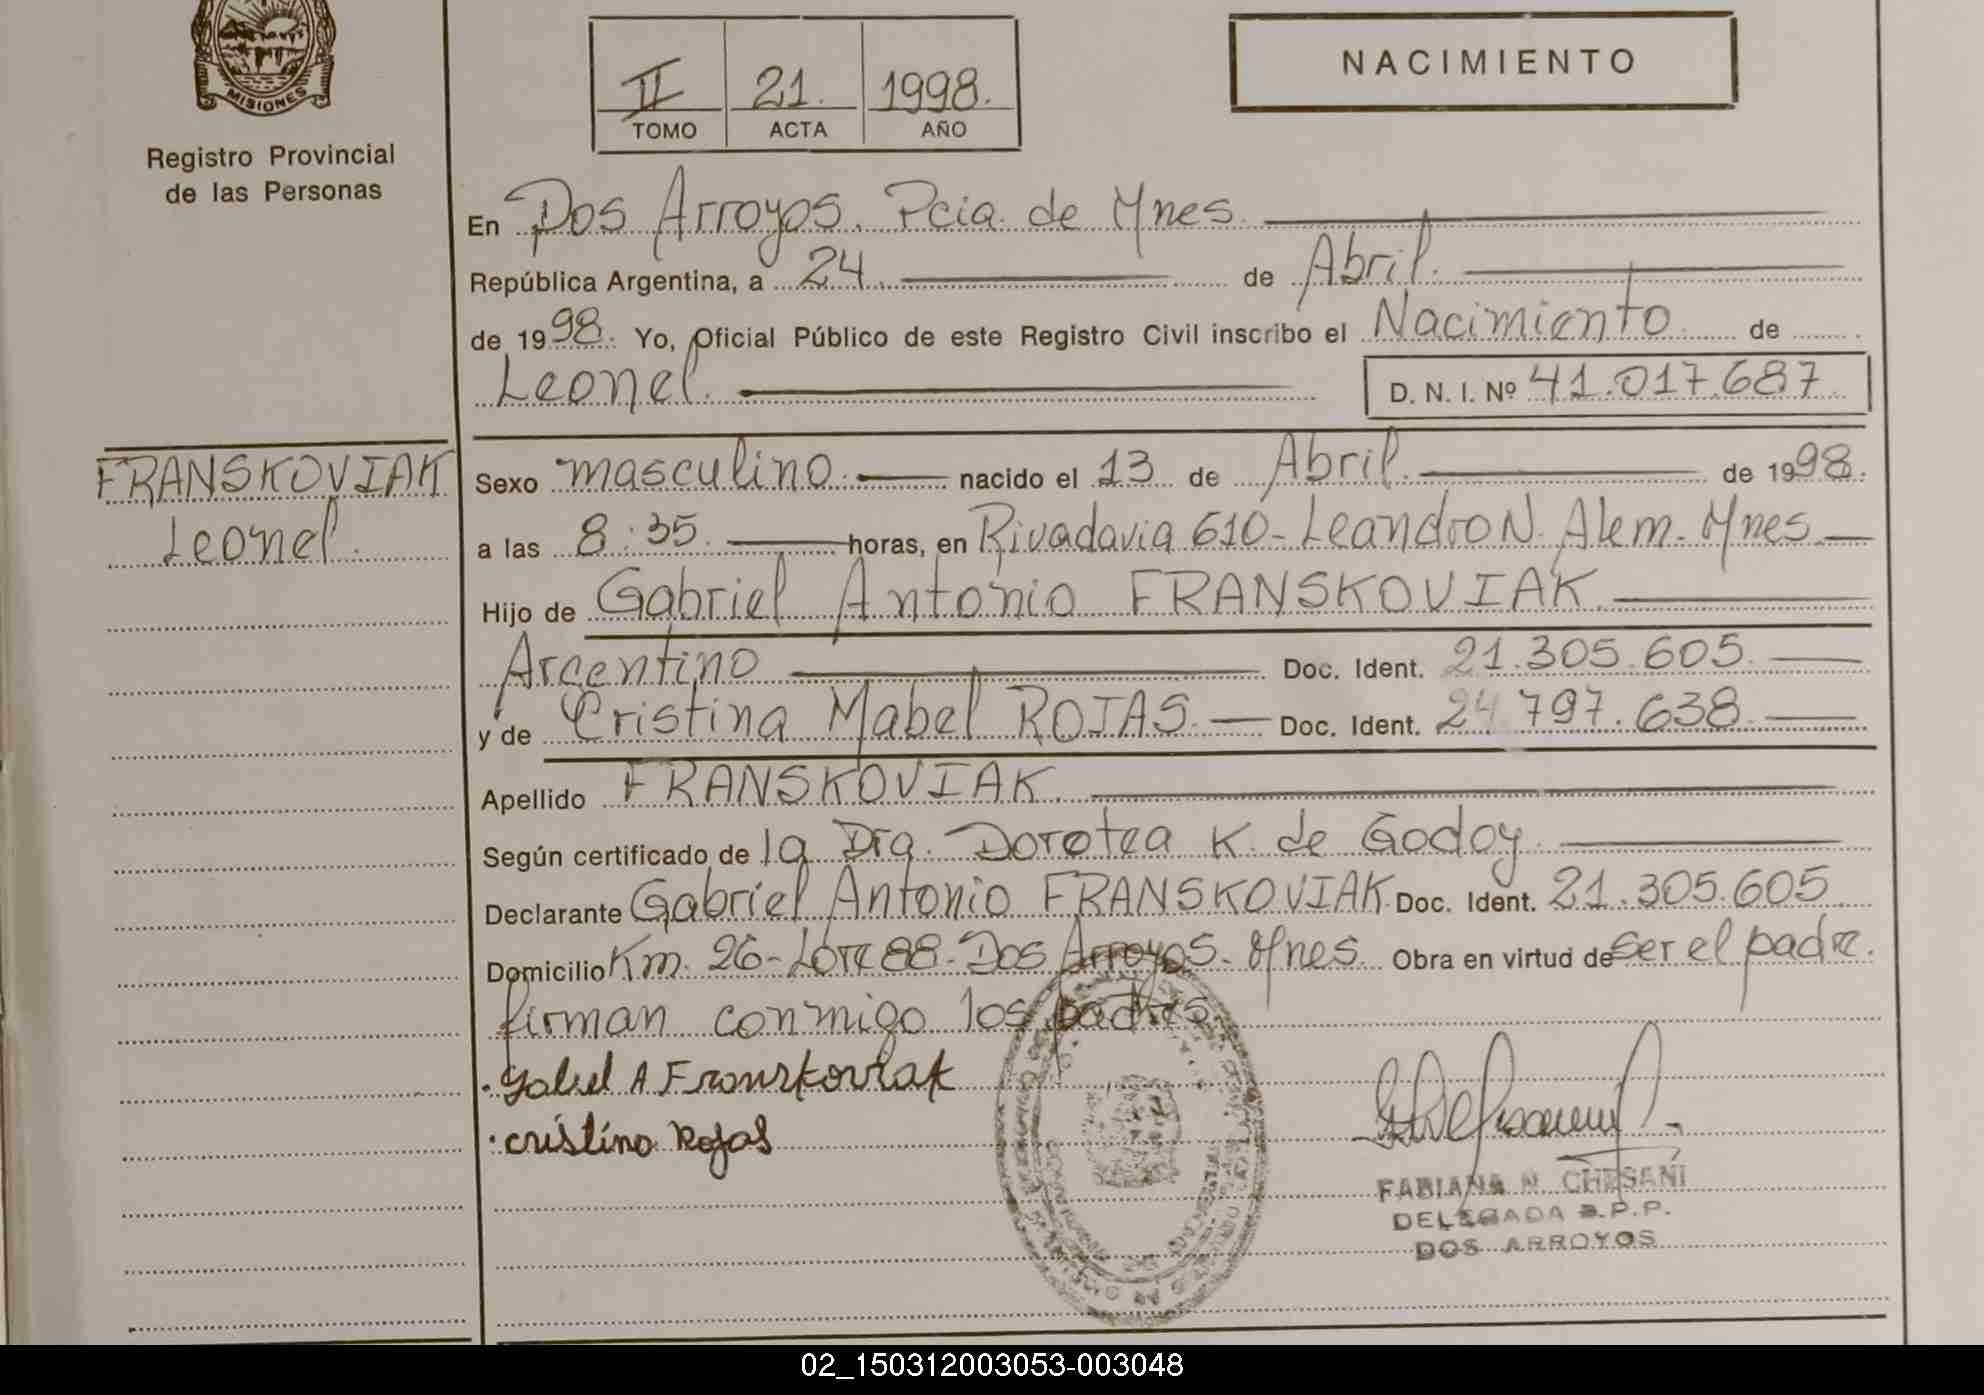 MISIONES
Registro Provincial
de las Personas
II 21. 1998.
TOMO ACTA AÑO
NACIMIENTO
En Dos Arroyos. Pcia. de Mnes.
República Argentina, a 24 de Abril.
de 1998. Yo, Oficial Público de este Registro Civil inscribo el Nacimiento de
Leonel.
D. N. I. Nº 41.017.687.
FRANSKOVIAK
Leonel.
Sexo masculino. nacido el 13 de Abril. de 1998.
a las 8:35. horas, en Rivadavia 610-Leandro N. Alem. Mnes.
Hijo de Gabriel Antonio FRANSKOVIAK.
Argentino Doc. Ident. 21.305.605.
y de Cristina Mabel ROJAS. Doc. Ident. 24.797.638.
Apellido FRANSKOVIAK.
Según certificado de la Dra. Dorotea K. de Godoy.
Declarante Gabriel Antonio FRANSKOVIAK. Doc. Ident. 21.305.605
Domicilio Km. 26-Lote 88-Dos Arroyos. Mnes. Obra en virtud de ser el padre.
firman conmigo los padres.
Gabriel A Franskoviak
Cristina Rojas
FABIANA N. CHESANI
DELEGADA R.P.P.
DOS ARROYOS
02_150312003053-003048